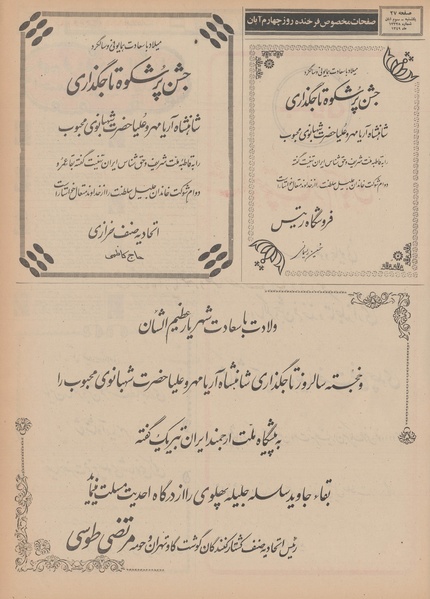 صفحه ۲۷
صفحات مخصوص فرخنده روز چهارم آبان
میلاد با سعادت همایونی و سالگرد
جشن پرشکوه تاجگذاری
شاهنشاه آریامهر و علیاحضرت شهبانوی محبوب
را به قاطبه ملت شریف و حق شناس ایران تهنیت گفته
دوام شوکت خاندان جلیل سلطنت را از خداوند متعال خواستار است
فروشگاه زنیس
میلاد با سعادت همایونی و سالگرد
جشن پرشکوه تاجگذاری
شاهنشاه آریامهر و علیاحضرت شهبانوی محبوب
را به قاطبه ملت شریف و حق شناس ایران تهنیت گفته بقا عمر و
دوام شوکت خاندان جلیل سلطنت را از خداوند متعال خواستار است
اتحادیه صنف خرازی
حاج کاظمی
ولادت با سعادت شهریار عظیم الشان
و خجسته سالروز تاجگذاری شاهنشاه آریامهر و علیاحضرت شهبانوی محبوب را
به پیشگاه ملت ارجمند ایران تبریک گفته
بقاء جاوید سلسله جلیله پهلوی را از درگاه احدیت مسئلت مینماید
رئیس اتحادیه صنف کشتارکنندگان گوشت گاو تهران و حومه مرتضی طوسی